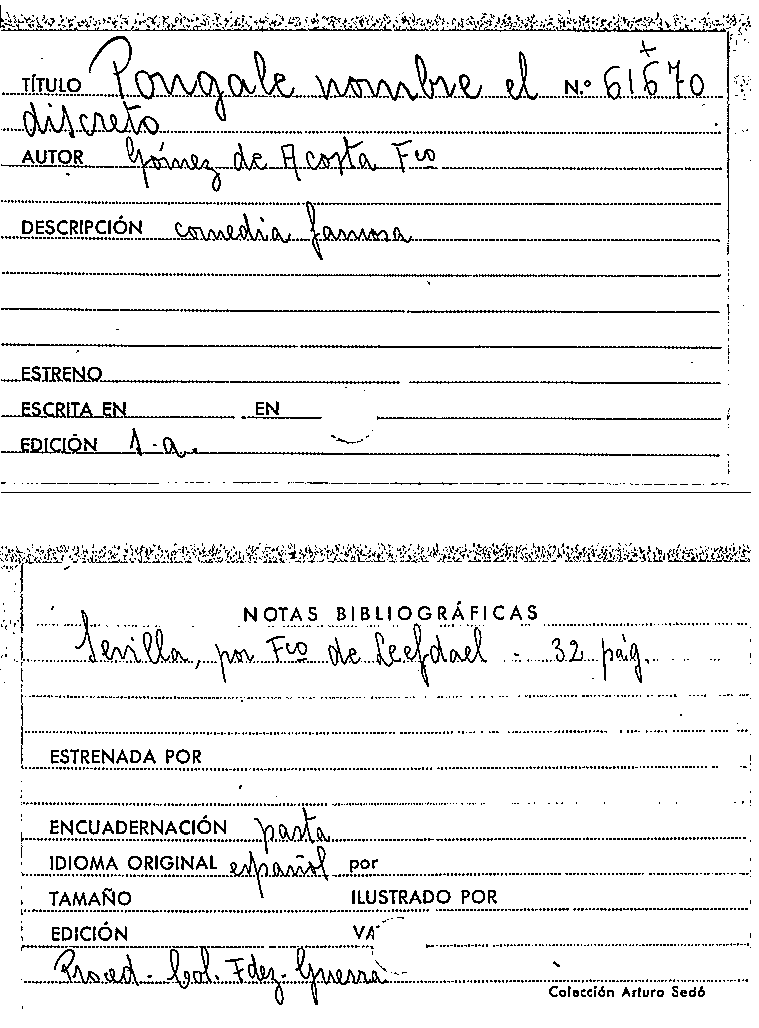 TÍTULO Pongale nombre el N.º 61670
+
discreto
AUTOR Gómez de Acosta Fco
DESCRIPCIÓN comedia famosa
ESTRENO
ESCRITA EN EN
EDICIÓN 1-a.
NOTAS BIBLIOGRÁFICAS
Sevilla, por Fco de Leefdael - 32 pág.
ESTRENADA POR
ENCUADERNACIÓN pasta
IDIOMA ORIGINAL español por
TAMAÑO ILUSTRADO POR
EDICIÓN VA
Proced. Col. Fdez-Guerra
Colección Arturo Sedó